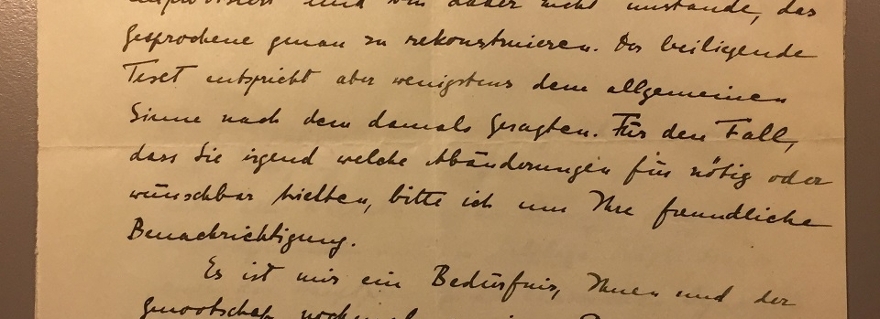 improvisiert und bin daher nicht imstande, das
Gesprochene genau zu rekonstruieren. Der beiligende
Text entspricht aber wenigstens dem allgemeinen
Sinne nach dem damals Gesagten. Für den Fall,
dass Sie irgend welche Abänderungen für nötig oder
wünschbar hielten, bitte ich um Ihre freundliche
Benachrichtigung.
Es ist mir ein Bedürfnis, Ihnen und der
Genootschap